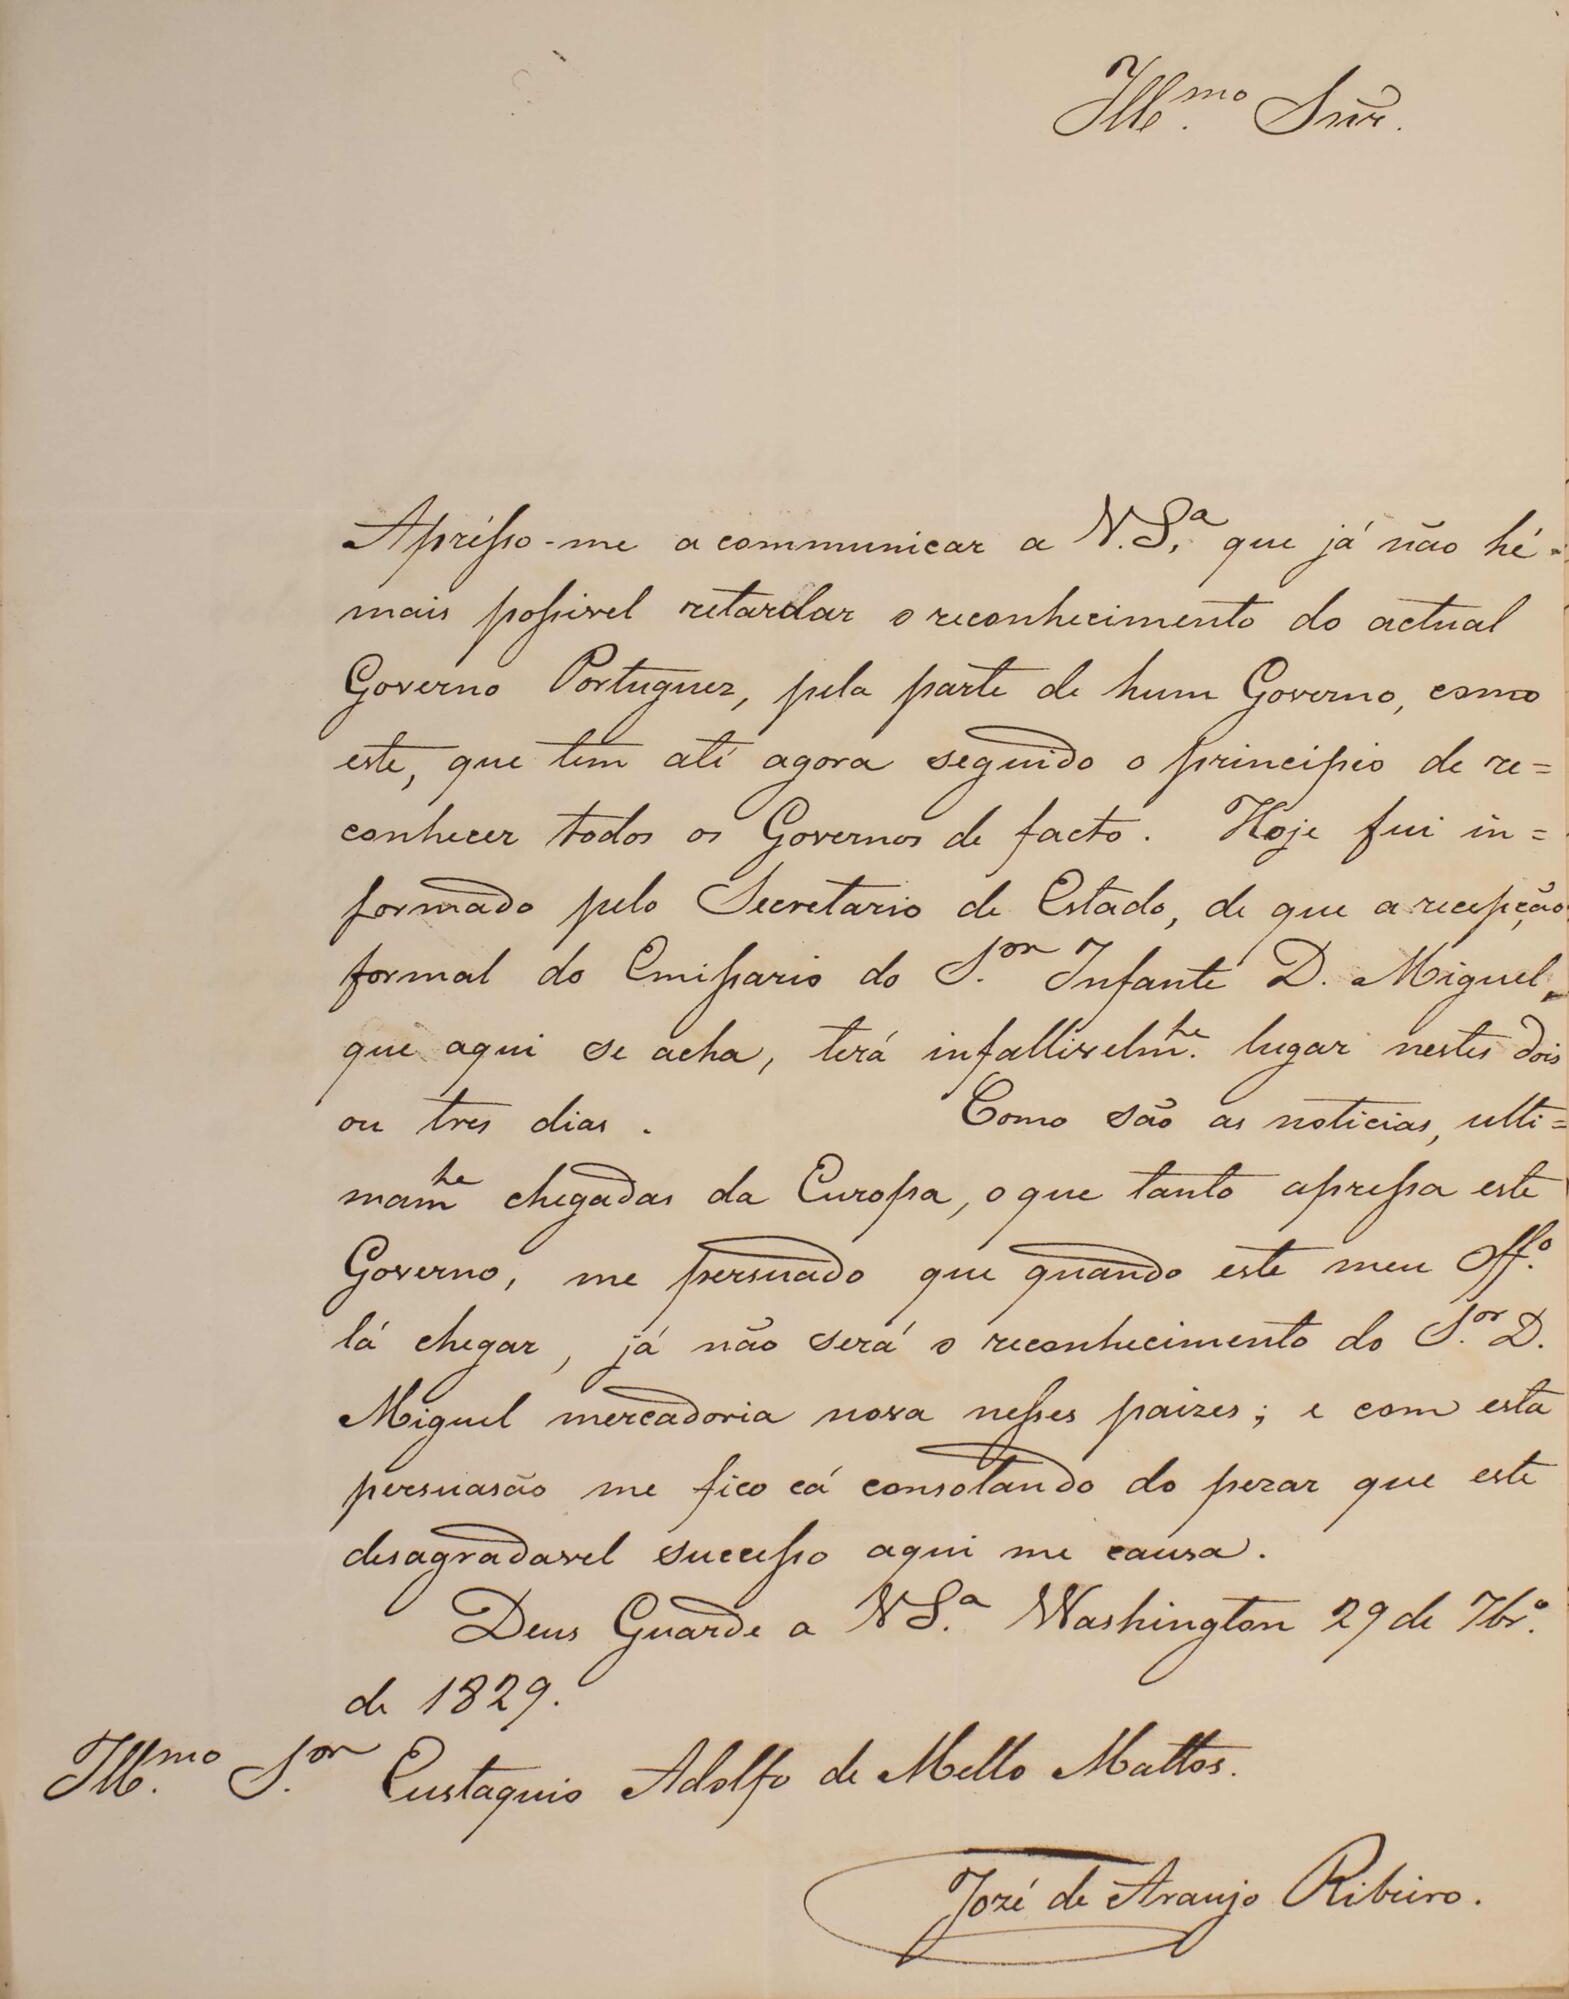 Ill.mo Snr.
Apresso-me a communicar a V.S.a que já não hé
mais possivel retardar o reconhecimento do actual
Governo Portuguez, pela parte de hum Governo, como
este, que tem até agora seguido o principio de re=
conhecer todos os Governos de facto. Hoje fui in=
formado pelo Secretario de Estado, de que a recepção
formal do Emissario do S.or Infante D. Miguel,
que aqui se acha, terá infallivelm.te lugar nestes dois
ou tres dias. Como são as noticias, ulti=
mamte chegadas da Europa, o que tanto apressa este
Governo, me persuado que quando este meu Off.o
lá chegar, já não será o reconhecimento do S.or D.
Miguel mercadoria nova nesses paizes; e com esta
persuasão me fico cá consolando do pezar que este
desagradavel successo aqui me causa.
Deus Guarde a V S.a Washington 29 de 7br.o
de 1829.
Ill.mo S.or Eustaquio Adolfo de Mello Mattos.
Jozé de Araujo Ribeiro.